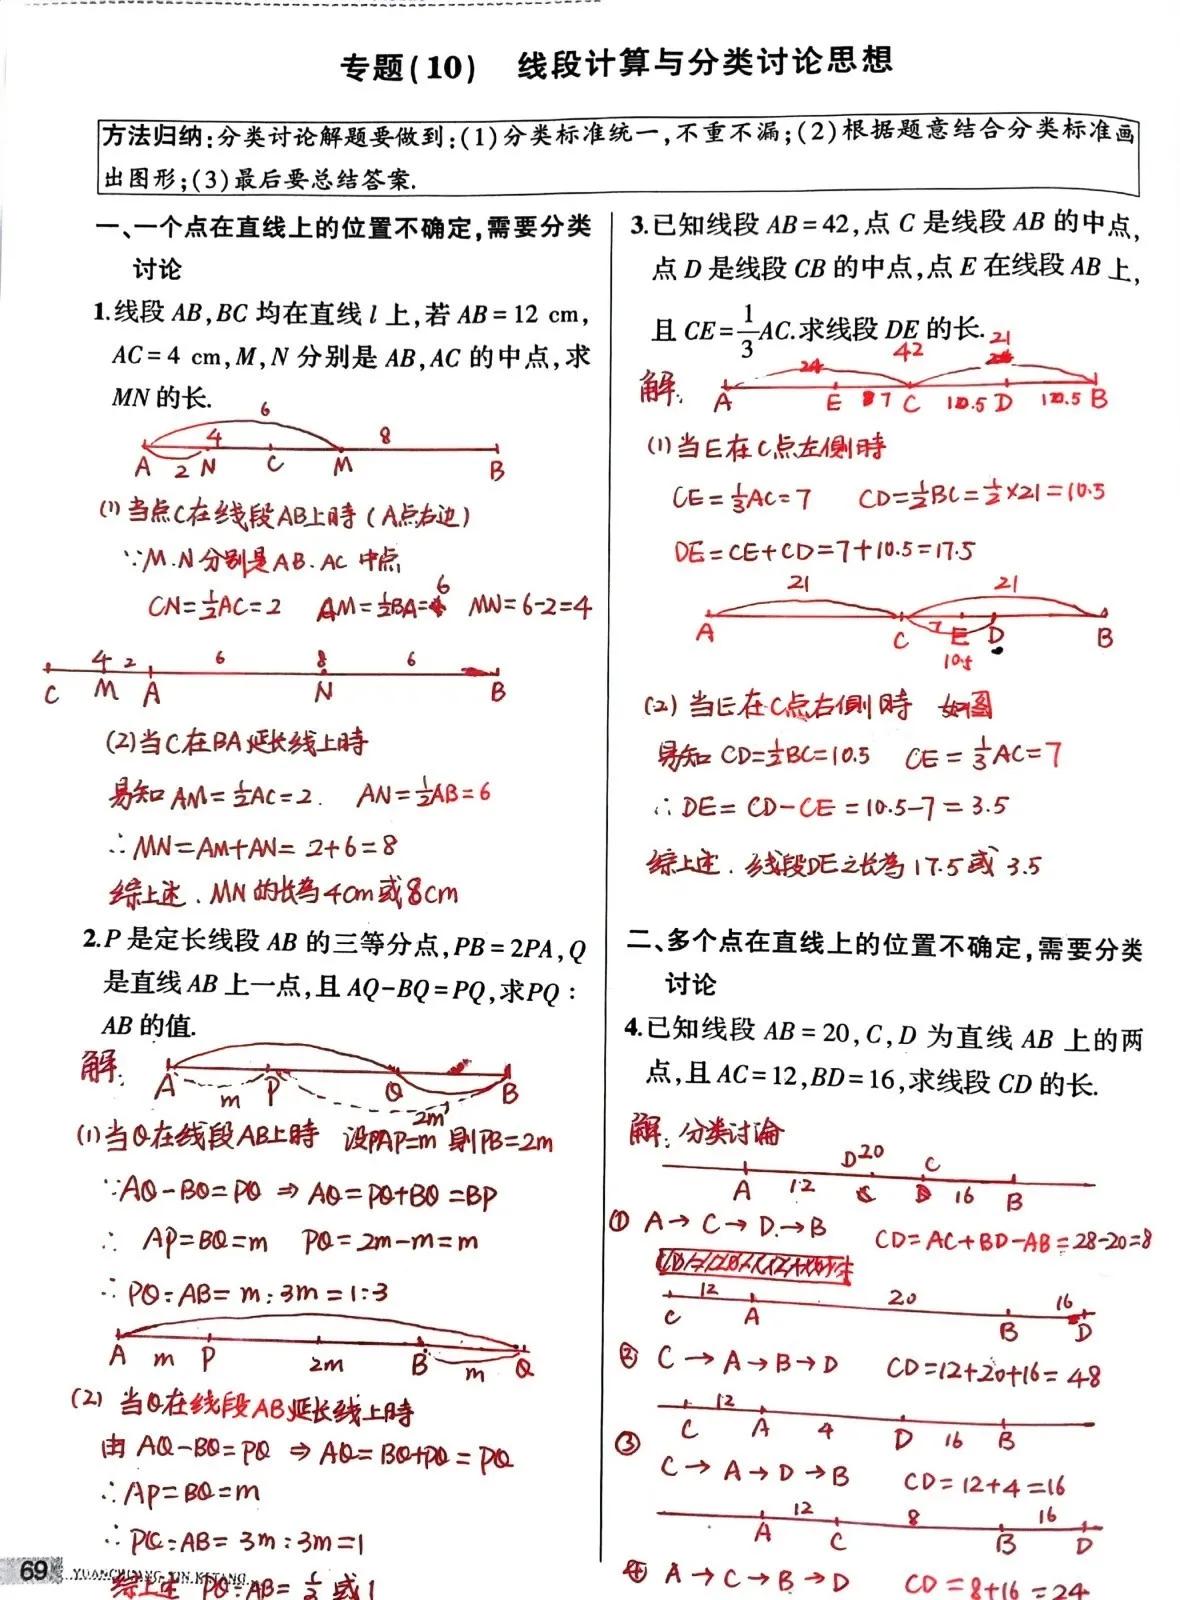 专题(10) 线段计算与分类讨论思想
方法归纳:分类讨论解题要做到:(1)分类标准统一,不重不漏;(2)根据题意结合分类标准画
出图形;(3)最后要总结答案.
一、一个点在直线上的位置不确定,需要分类
讨论
1.线段 AB,BC 均在直线 l 上,若 AB=12 cm,
AC=4 cm,M,N 分别是 AB,AC 的中点,求
MN 的长.
6
4 8
A 2 N C M B
(1)当点C在线段AB上时(A点右边)
∵M.N分别是AB.AC 中点
CN=½AC=2 AM=½BA=6 MN=6-2=4
4 2 6 8 6
C M A N B
(2)当C在BA延长线上时
易知AM=½AC=2. AN=½AB=6
∴MN=AM+AN=2+6=8
综上述.MN的长為4cm或8cm
2.P 是定长线段 AB 的三等分点,PB=2PA,Q
是直线 AB 上一点,且 AQ-BQ=PQ,求PQ:
AB 的值.
解:
A P Q B
m 2m
(1)当Q在线段AB上時 设AP=m 则PB=2m
∵AQ-BQ=PQ ⇒ AQ=PQ+BQ=BP
∴ AP=BQ=m PQ=2m-m=m
∴PQ:AB=m:3m=1:3
A m P 2m B m Q
(2) 当Q在线段AB延长线上時
由AQ-BQ=PQ ⇒ AQ=BQ+PQ=PQ
∴AP=BQ=m
∴PQ:AB=3m:3m=1
综上述 PQ:AB=⅓或1
69 YUANCHUANG XIN KETANG
3.已知线段 AB=42,点 C 是线段 AB 的中点,
点 D 是线段 CB 的中点,点 E 在线段 AB 上,
且 CE=1/3AC.求线段 DE 的长.
42 21
解:
A E 7 C 10.5 D 10.5 B
(1)当E在C点左側時
CE=⅓AC=7 CD=½BC=½×21=10.5
DE=CE+CD=7+10.5=17.5
21 21
A C 7 E D B
10.5
(2)当E在C点右側時 如图
易知CD=½BC=10.5 CE=⅓AC=7
∴DE=CD-CE=10.5-7=3.5
综上述.线段DE之长為17.5或3.5
二、多个点在直线上的位置不确定,需要分类
讨论
4.已知线段 AB=20,C,D 为直线 AB 上的两
点,且 AC=12,BD=16,求线段 CD 的长.
解:分类讨論
D 20 C
A 12 16 B
① A→C→D→B CD=AC+BD-AB=28-20=8
12 20 16
C A B D
② C→A→B→D CD=12+20+16=48
12
C A 4 D 16 B
③
C→A→D→B CD=12+4=16
12 8 16
A C B D
④ A→C→B→D CD=8+16=24